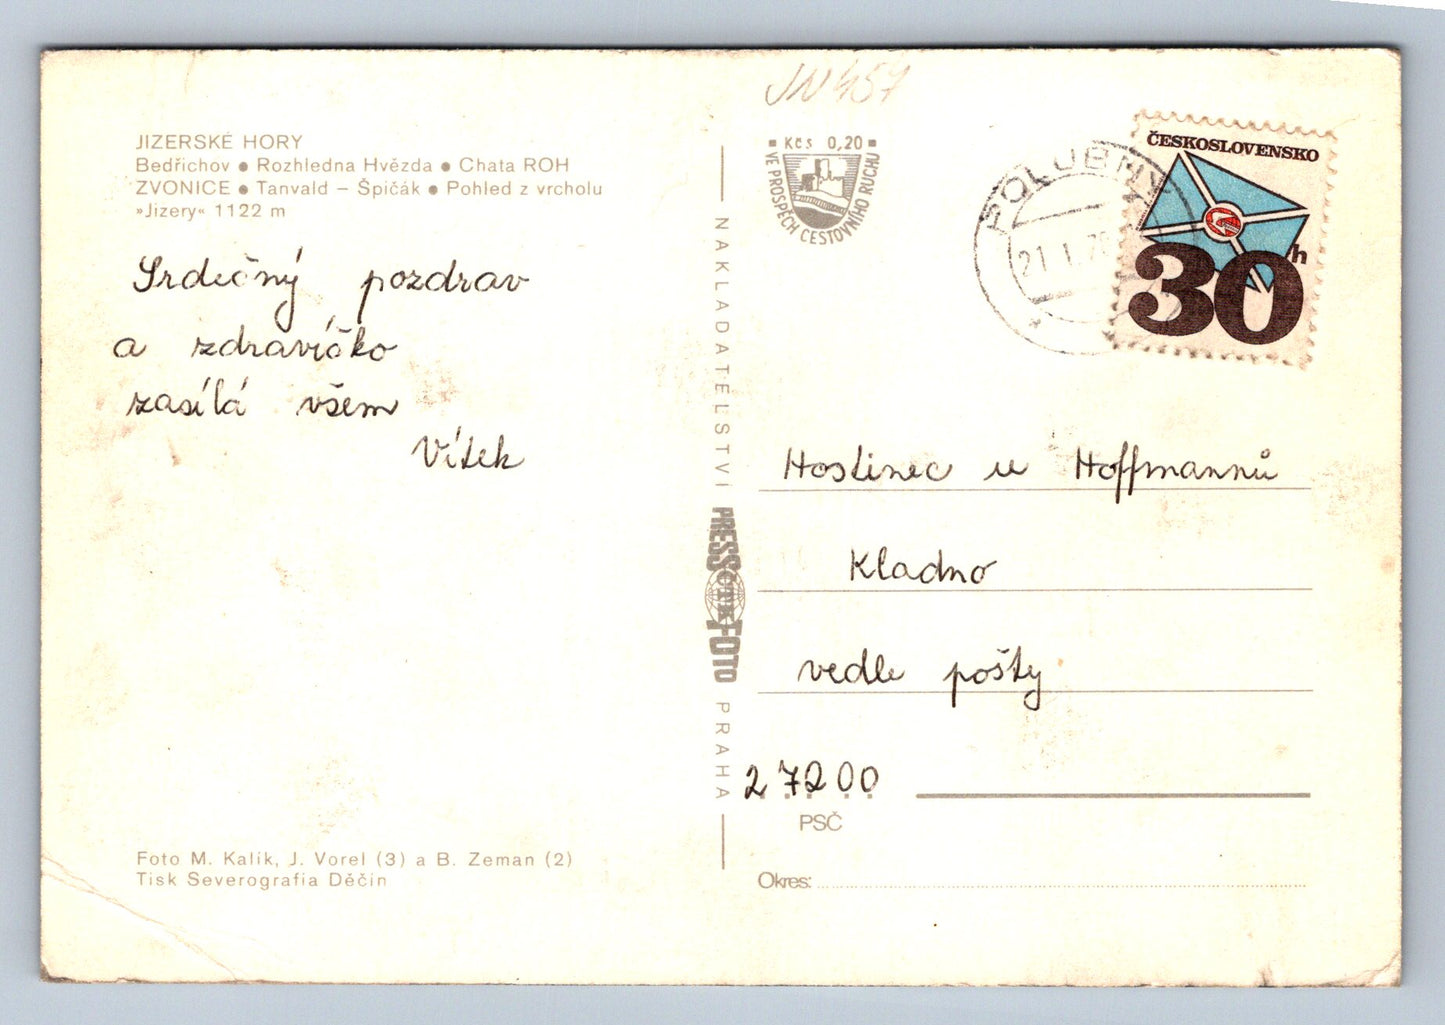 JIZERSKÉ HORY
Bedřichov ● Rozhledna Hvězda ● Chata ROH
ZVONICE ● Tanvald – Špičák ● Pohled z vrcholu
»Jizery« 1122 m
Srdečný pozdrav
a zdravíčko
zasílá všem
Vítek
Foto M. Kalík, J. Vorel (3) a B. Zeman (2)
Tisk Severografia Děčín
NAKLADATELSTVÍ PRESSFOTO PRAHA
ČTK
Kčs 0,20
VE PROSPĚCH CESTOVNÍHO RUCHU
POLUBNÝ
21.1.7
ČESKOSLOVENSKO
30h
Hostinec u Hoffmannů
Kladno
vedle pošty
27200
PSČ
Okres: